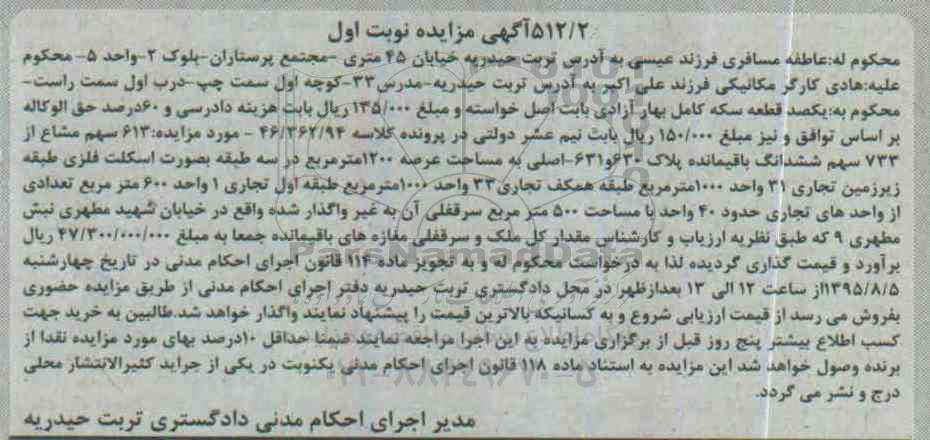 ۵۱۲/۲آگهی مزایده نوبت اول
محکوم له:عاطفه مسافری فرزند عیسی به آدرس تربت حیدریه خیابان ۴۵ متری -مجتمع پرستاران-بلوک ۲-واحد ۵- محکوم
علیه:هادی کارگر مکانیکی فرزند علی اکبر به آدرس تربت حیدریه-مدرس ۳۳-کوچه اول سمت چپ-درب اول سمت راست-
محکوم به:یکصد قطعه سکه کامل بهار آزادی بابت اصل خواسته و مبلغ ۱۳۵/۰۰۰ ریال بابت هزینه دادرسی و ۶۰درصد حق الوکاله
بر اساس توافق و نیز مبلغ ۱۵۰/۰۰۰ ریال بابت نیم عشر دولتی در پرونده کلاسه ۴۶/۳۶۲/۹۴ - مورد مزایده:۶۱۳ سهم مشاع از
۷۳۳ سهم ششدانگ باقیمانده پلاک ۶۳۰و۶۳۱-اصلی به مساحت عرصه ۱۲۰۰مترمربع در سه طبقه بصورت اسکلت فلزی طبقه
زیرزمین تجاری ۳۱ واحد ۱۰۰۰مترمربع طبقه همکف تجاری۳۳ واحد ۱۰۰۰مترمربع طبقه اول تجاری ۱ واحد ۶۰۰ متر مربع تعدادی
از واحد های تجاری حدود ۴۰ واحد با مساحت ۵۰۰ متر مربع سرقفلی آن به غیر واگذار شده واقع در خیابان شهید مطهری نبش
مطهری ۹ که طبق نظریه ارزیاب و کارشناس مقدار کل ملک و سرقفلی مغازه های باقیمانده جمعا به مبلغ ۴۷/۳۰۰/۰۰۰/۰۰۰ ریال
برآورد و قیمت گذاری گردیده لذا به درخواست محکوم له و به تجویز ماده ۱۱۴ قانون اجرای احکام مدنی در تاریخ چهارشنبه
۱۳۹۵/۸/۵از ساعت ۱۲ الی ۱۳ بعدازظهر در محل دادگستری تربت حیدریه دفتر اجرای احکام مدنی از طریق مزایده حضوری
بفروش می رسد از قیمت ارزیابی شروع و به کسانیکه بالاترین قیمت را پیشنهاد نمایند واگذار خواهد شد.طالبین به خرید جهت
کسب اطلاع بیشتر پنج روز قبل از برگزاری مزایده به این اجرا مراجعه نمایند ضمنا حداقل ۱۰درصد بهای مورد مزایده نقدا از
برنده وصول خواهد شد این مزایده به استناد ماده ۱۱۸ قانون اجرای احکام مدنی یکنوبت در یکی از جراید کثیرالانتشار محلی
درج و نشر می گردد.
مدیر اجرای احکام مدنی دادگستری تربت حیدریه